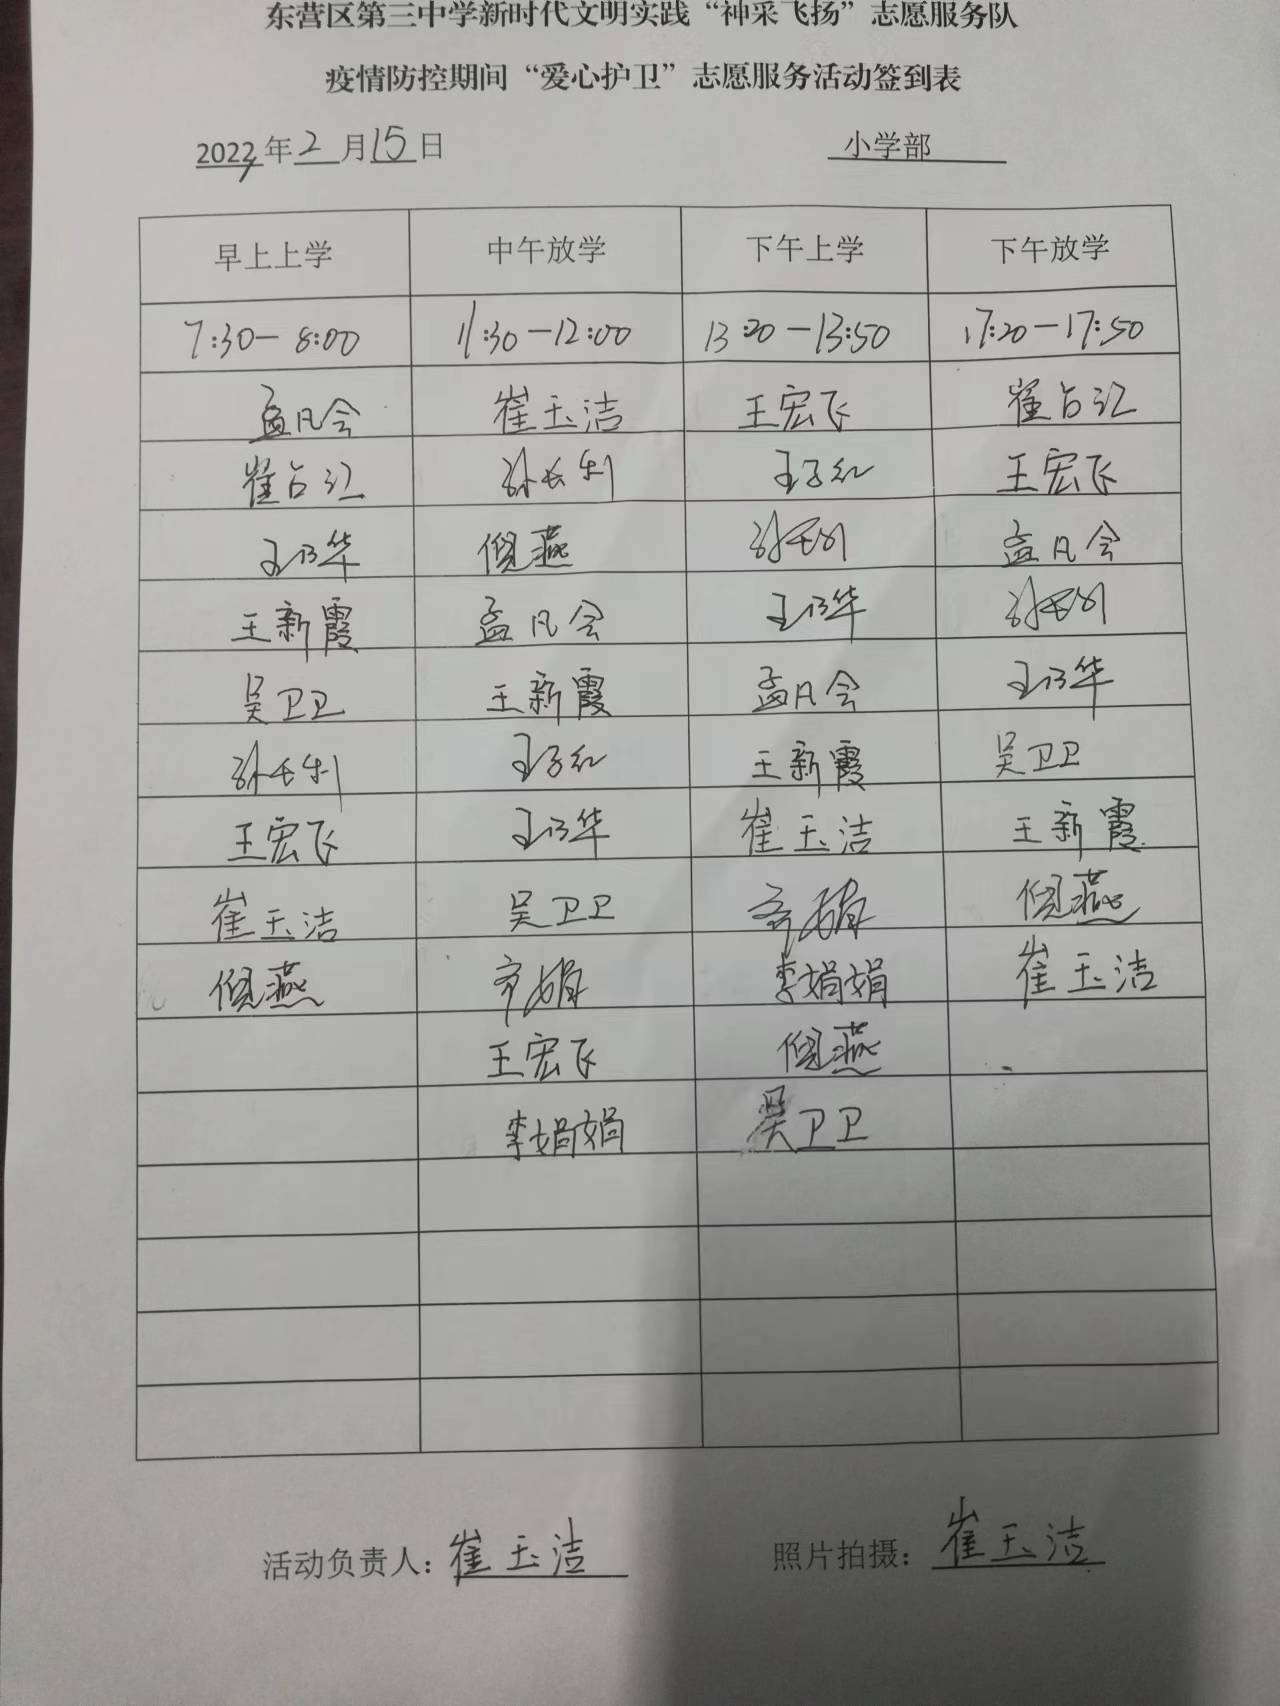 东营区第三中学新时代文明实践“神采飞扬”志愿服务队
疫情防控期间“爱心护卫”志愿服务活动签到表
2022年2月15日 小学部
早上上学 中午放学 下午上学 下午放学
7:30-8:00 11:30-12:00 13:20-13:50 17:20-17:50
孟凡会 崔玉洁 王宏飞 崔占江
崔占江 孙长利 王子红 王宏飞
王乃华 倪燕 孙长利 孟凡会
王新霞 孟凡会 王乃华 孙长利
吴卫卫 王新霞 孟凡会 王乃华
孙长利 王子红 王新霞 吴卫卫
王宏飞 王乃华 崔玉洁 王新霞
崔玉洁 吴卫卫 齐娟 倪燕
倪燕 齐娟 李娟娟 崔玉洁
王宏飞 倪燕
李娟娟 吴卫卫
活动负责人：崔玉洁 照片拍摄：崔玉洁